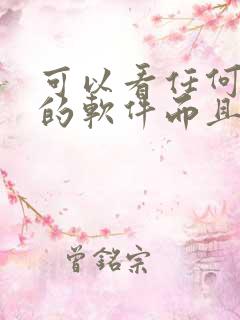 可以看任何
的軟件而且
曾銘宗